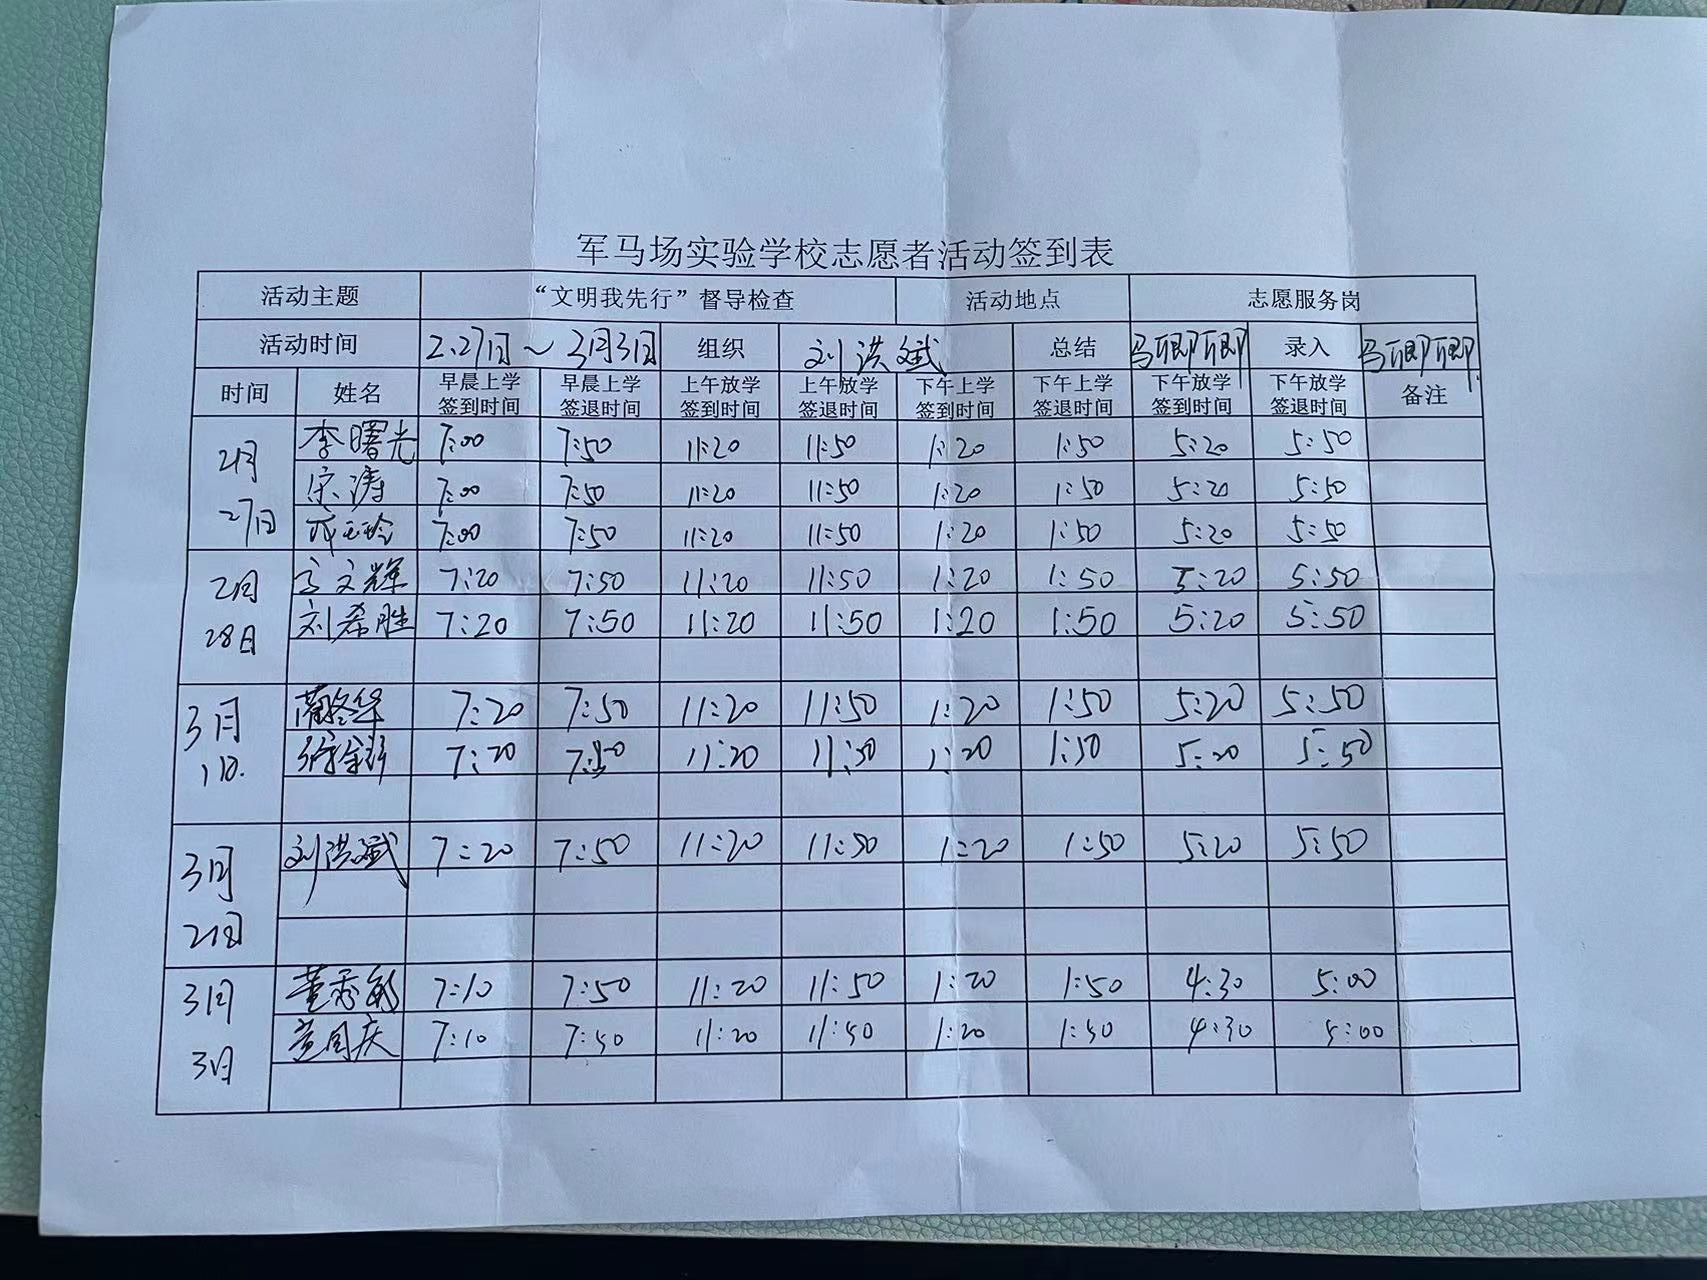 军马场实验学校志愿者活动签到表
活动主题 “文明我先行”督导检查 活动地点 志愿服务岗
活动时间 2.27日～3月3日 组织 刘洪斌 总结 马卿卿 录入 马卿卿
时间 姓名 早晨上学签到时间 早晨上学签退时间 上午放学签到时间 上午放学签退时间 下午上学签到时间 下午上学签退时间 下午放学签到时间 下午放学签退时间 备注
2月27日 李曙光 7:00 7:50 11:20 11:50 1:20 1:50 5:20 5:50
宋涛 7:00 7:50 11:20 11:50 1:20 1:50 5:20 5:50
7:00 7:50 11:20 11:50 1:20 1:50 5:20 5:50
2月28日 文辉 7:20 7:50 11:20 11:50 1:20 1:50 5:20 5:50
刘希胜 7:20 7:50 11:20 11:50 1:20 1:50 5:20 5:50
3月1日. 7:20 7:50 11:20 11:50 1:20 1:50 5:20 5:50
7:20 7:50 11:20 11:50 1:20 1:50 5:20 5:50
3月2日 刘洪斌 7:20 7:50 11:20 11:50 1:20 1:50 5:20 5:50
3月3日 董秀敏 7:10 7:50 11:20 11:50 1:20 1:50 4:30 5:00
国庆 7:10 7:50 11:20 11:50 1:20 1:50 4:30 5:00